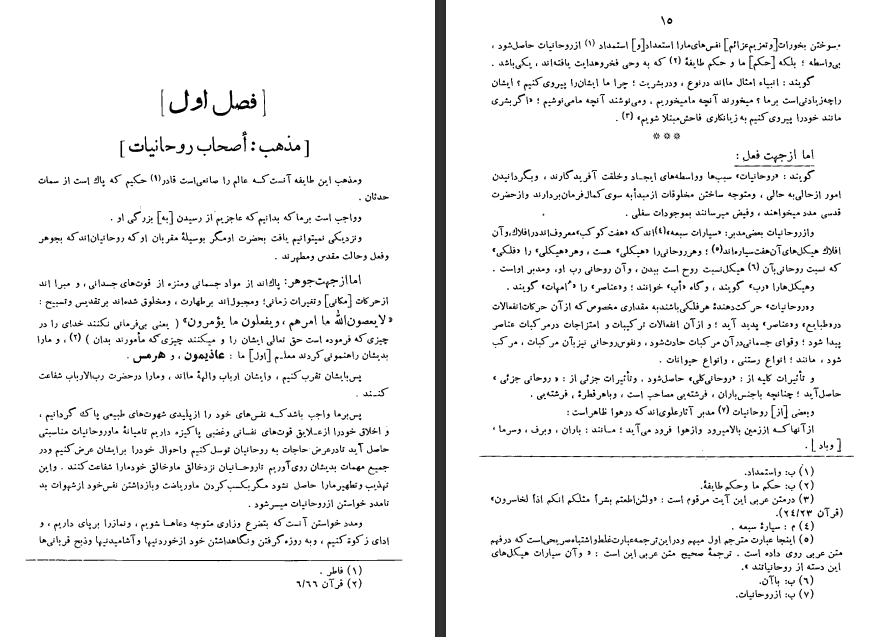 [فصل اول]
[مذهب: أصحاب روحانیات]
ومذهب این طایفه آنست که عالم را صانعی است قادر(۱) حکیم که پاك است از سمات
حدثان .
وواجب است برما که بدانیم که عاجزیم از رسیدن [به] بزرگی او .
ونزدیکی نمیتوانیم یافت بحضرت او مگر بوسیلۀ مقربان او که روحانیان‌اند که بجوهر
وفعل وحالت مقدس ومطهرند .
اما ازجهت جوهر: پاك‌اند از مواد جسمانی ومنزه از قوت‌های جسدانی ، و مبرا اند
ازحرکات [مکانی] وتغیرات زمانی؛ ومجبول‌اند برطهارت ، ومخلوق شده‌اند برتقدیس وتسبیح :
«لایعصون‌الله ما امرهم ، ویفعلون ما یؤمرون» ( یعنی بی‌فرمانی نکنند خدای را در
چیزی که فرموده است حق تعالی ایشان را و میکنند چیزی که مأمورند بدان ) (۲) ، و مارا
بدیشان راهنمونی کردند معلم [اول] ما : عاذیمون ، و هرمس .
پس بایشان تقرب کنیم ، وایشان ارباب والهۀ مااند ، ومارا درحضرت رب‌الارباب شفاعت
کنند .
پس برما واجب باشد که نفس‌های خود را از پلیدی شهوت‌های طبیعی پاك گردانیم ،
و اخلاق خودرا ازعلایق قوت‌های نفسانی وغضبی پاکیزه داریم تامیانۀ ماوروحانیات مناسبتی
حاصل آید تادرعرض حاجات به روحانیان توسل کنیم واحوال خودرا برایشان عرض کنیم ودر
جمیع مهمات بدیشان روی‌آوریم تاروحانیان نزدخالق ماوخالق خودمارا شفاعت کنند . واین
تهذیب وتطهیرمارا حاصل نشود مگربکسب کردن ماوریاضت وبازداشتن نفس خود ازشهوات بد
تامدد خواستن ازروحانیات میسرشود .
ومدد خواستن آنست که بتضرع وزاری متوجه دعاها شویم ، ونمازرا برپای داریم ، و
ادای زکوة کنیم ، وبه روزه گرفتن ونگاهداشتن خود ازخوردنیها وآشامیدنیها وذبح قربانی‌ها
(۱) فاطر .
(۲) قرآن ۶/۶۶
۱۵
وسوختن بخورات [وتعزیم عزائم] نفس‌های مارا استعداد [و] استمداد (۱) ازروحانیات حاصل‌شود ،
بی‌واسطه ؛ بلکه [حکم] ما و حکم طایفۀ (۲) که به وحی فخروهدایت یافته‌اند ، یکی‌باشد .
گویند : انبیاء امثال مااند درنوع ، ودربشریت ؛ چرا ما ایشان‌را پیروی کنیم ؟ ایشان
راچه‌زیادتی‌است برما ؟ میخورند آنچه مامیخوریم ، ومی‌نوشند آنچه مامی‌نوشیم ؛ «اگربشری
مانند خودرا پیروی کنیم به زیانکاری فاحش مبتلا شویم» (۳) .
***
اما ازجهت فعل :
گویند : «روحانیات» سبب‌ها وواسطه‌های ایجاد وخلقت آفریدگارند ، وبگردانیدن
امور ازحالی‌به حالی ، ومتوجه ساختن مخلوقات ازمبدأبه سوی کمال‌فرمان‌بردارند وازحضرت
قدسی مدد میخواهند ، وفیض میرسانند بموجودات سفلی .
وازروحانیات بعضی‌مدبر: «سیارات سبعه»(۴)اند که «هفت کوکب»معروف‌انددرافلاك،وآن
افلاك هیکل‌های‌آن‌هفت‌سیاره‌اند(۵) ؛ وهرروحانی‌را «هیکلی» هست ، وهر«هیکلی» را «فلکی»
که نسبت روحانی‌بآن (۶) هیکل‌نسبت روح است ببدن ، وآن روحانی رب او، ومدبر اواست .
وهیکل‌هارا «رب» گویند ، وگاه «أب» خوانند ؛ و«عناصر» را «اُمهات» گویند .
و«روحانیات» حرکت‌دهندۀ هرفلکی‌باشندبه مقداری مخصوص که ازآن حرکات‌انفعالات
در«طبایع» و«عناصر» پدید آید ؛ و ازآن انفعالات ترکیبات و امتزاجات درمرکبات عناصر
پیدا شود ؛ وقوای جسمانی‌درآن مرکبات حادث‌شود ، ونفوس‌روحانی نیزبآن مرکبات ، مرکب
شود ، مانند ؛ انواع رستنی ، وانواع حیوانات .
و تأثیرات کلیه از : «روحانی‌کلی» حاصل‌شود . وتأثیرات جزئی از : « روحانی جزئی »
حاصل‌آید ؛ چنانچه باجنس‌باران ، فرشته‌یی مصاحب است ، وباهرقطرۀ ، فرشته‌یی .
وبعضی [از] روحانیات (۷) مدبر آثارعلوی‌اندکه درهوا ظاهراست :
ازآنها که اززمین بالامیرود وازهوا فرود می‌آید ؛ مانند : باران ، وبرف ، وسرما ،
[ وباد ] .
(۱) ب: واستمداد.
(۲) ب: حکم ما وحکم طایفۀ.
(۳) درمتن عربی این آیت مرقوم است : «ولئن‌اطعتم بشراً مثلکم انکم اذاً لخاسرون»
(قرآن ۲۴/۲۳).
(۴) م : سیارۀ سبعه .
(۵) اینجا عبارت مترجم اول مبهم ودراین‌ترجمه‌عبارت‌غلط‌واشتباه‌صریحی‌است که‌درفهم
متن عربی روی داده است . ترجمۀ صحیح متن عربی‌این است : « وآن سیارات هیکل‌های
این دسته از روحانیاتند ».
(۶) ب: باآن.
(۷) ب: ازروحانیات.